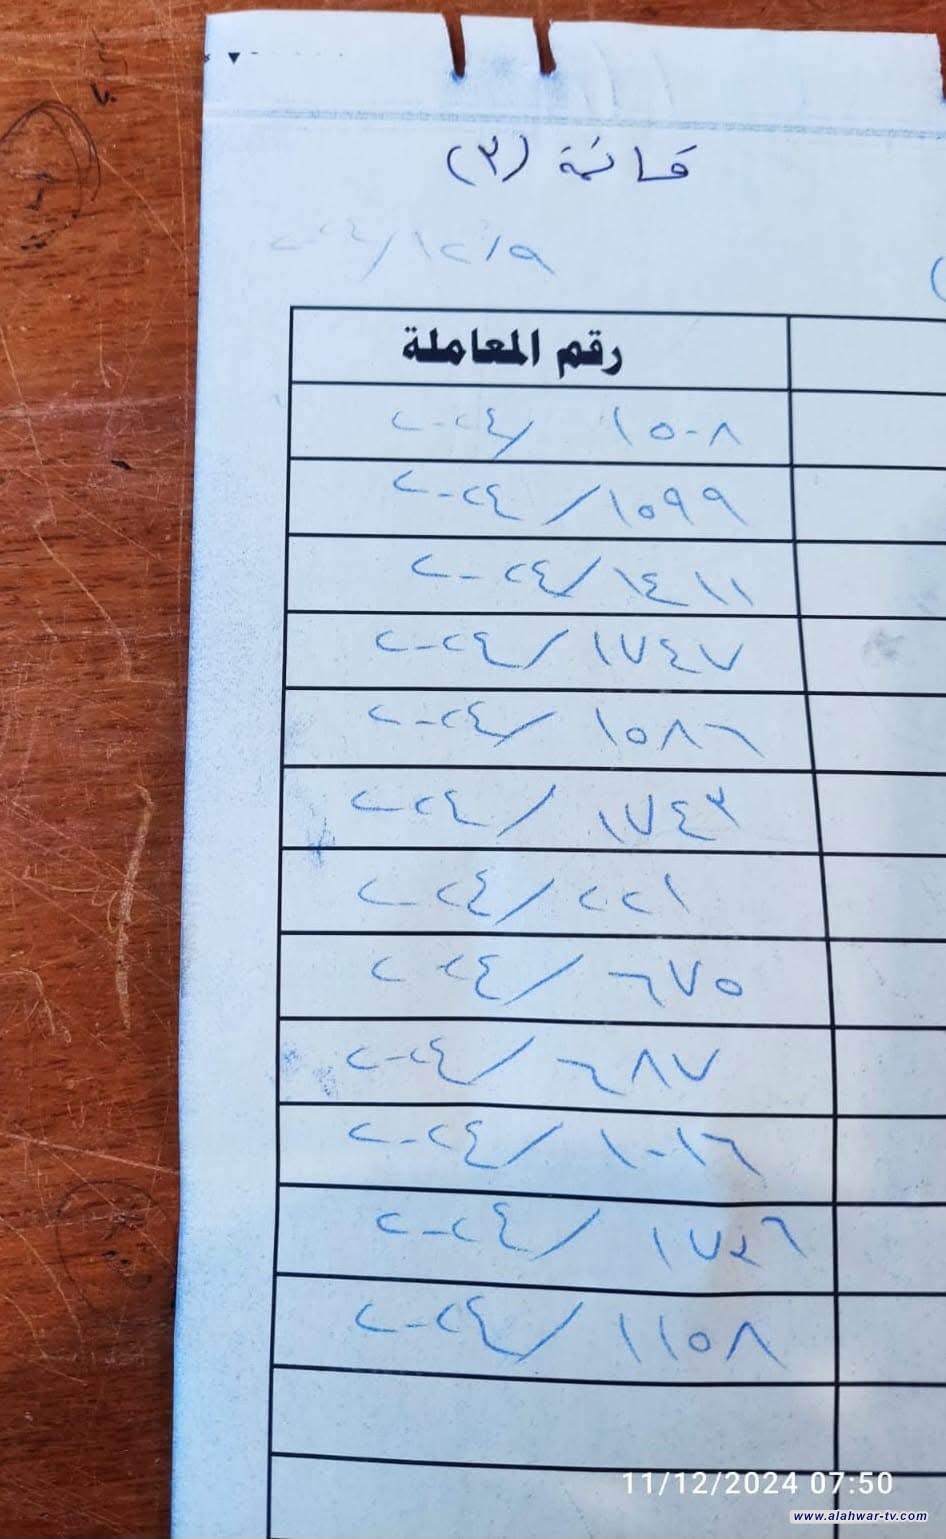 قائمة (٣)
٢٠٢٤/١٢/٩
رقم المعاملة
١٥٠٨ /٢٠٢٤
١٥٩٩/٢٠٢٤
١٤١١/٢٠٢٤
١٧٤٧/٢٠٢٤
١٥٨٦/٢٠٢٤
١٧٤٣/٢٠٢٤
٢٢١/٢٠٢٤
٦٧٥/٢٠٢٤
٦٨٧/٢٠٢٤
١٠١٦/٢٠٢٤
/٢٠٢٤
١١٥٨/٢٠٢٤
11/12/2024 07:50
www.alahwar-tv.com